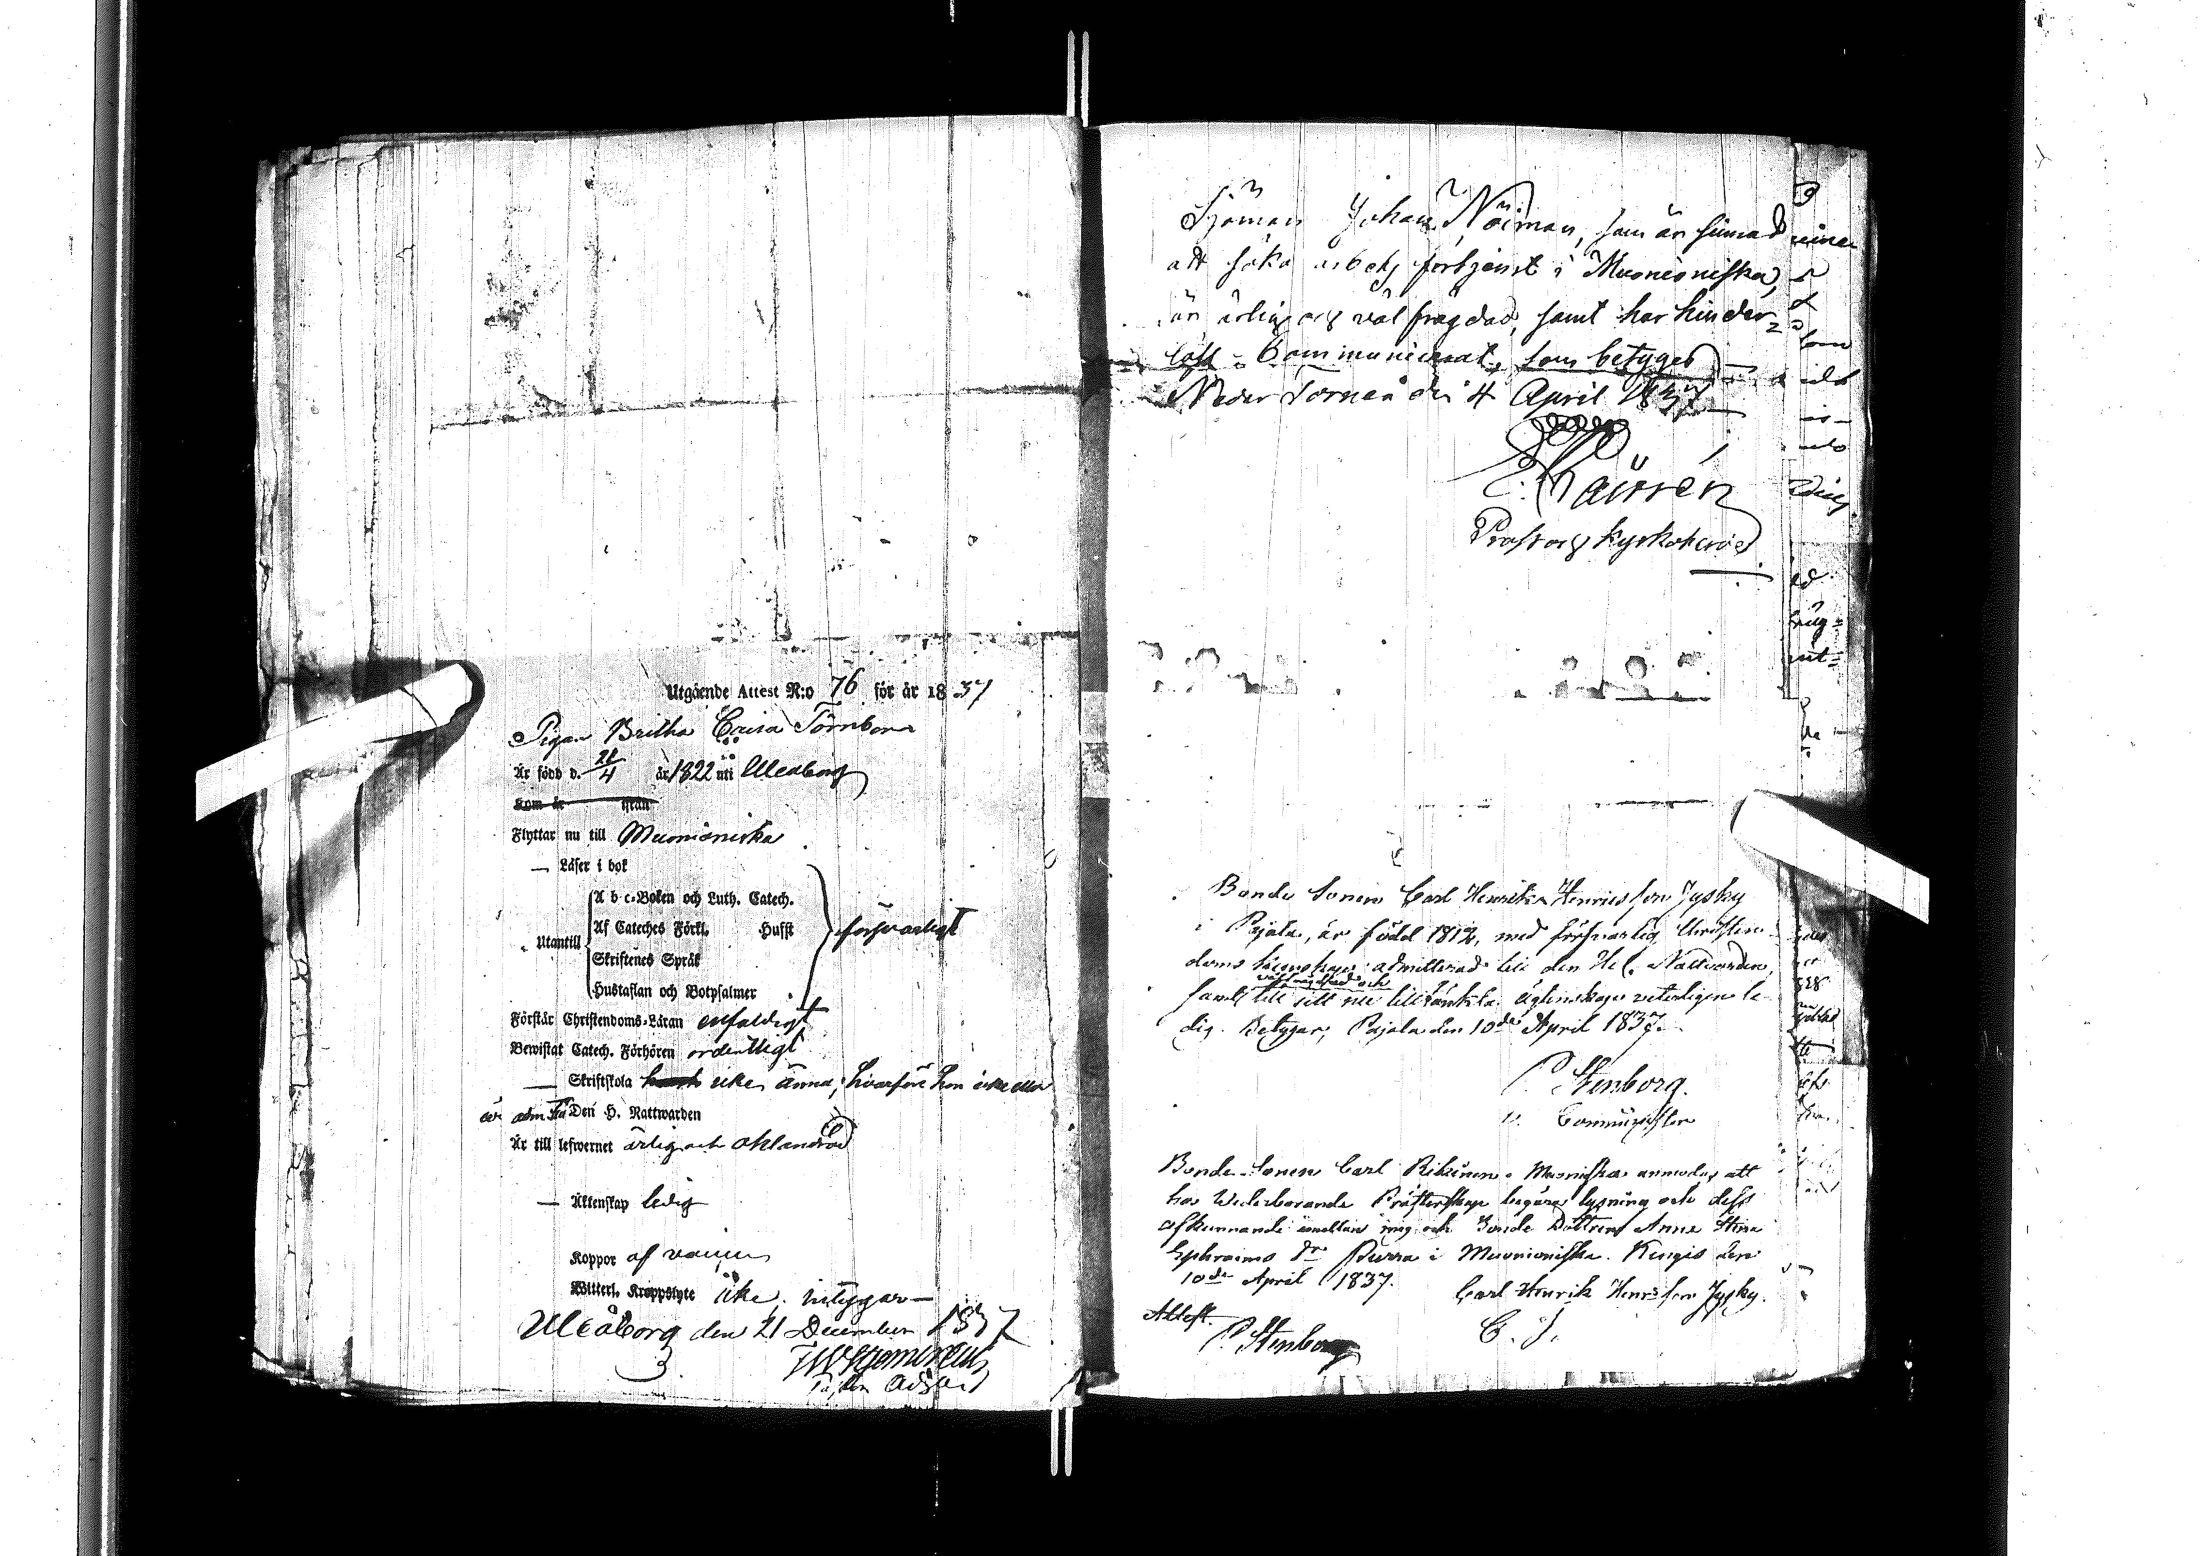 Utgående Attest N:o 76 för år 1837
Pigan Britha Caisa Törnbom
Är född d. 21/4 år 1822 uti Uleåborg
Kom år ifrån
Flyttar nu till Muonioniska
— Läser i bok
A b c-Boken och Luth. Catech.
Af Cateches Förkl. Husst
Utantill försvarligt
Skriftenes Språk
Hustaflan och Botpsalmer
Förstår Christendoms-Läran enfaldigt
Bewistat Catech. Förhören ordentligt
— Skriftskola icke ännu, hvarföre hon icke eller
är adm. till Den H. Nattwarden
Är till lefwernet ärlig och oklandrad
— Äktenskap ledig
Koppor af vaccin
Witterl. Kroppslyte icke, intygar —
Uleåborg den 21 December 1837
Sjöman Johan Nöiman, som är sinnad
att söka arbets förtjenst i Muonioniska,
är ärlig och väl frägdad, samt har hinder-
löst Communicerat, som betyges
Neder Torneå den 4 April 1837
Prost och Kyrkoherde
Bonde Sonen Carl Henrik Henricsson Jysky
i Pajala, är född 1812, med försvarlig Christen-
doms kunskap admitterad till den Hel. Nattvarden,
välfrägdad och
samt till sitt nu tilltänkta ägtenskap veterligen le-
dig. Betygar, Pajala den 10de April 1837.
P. Stenborg.
v. Comminister
Bonde Sonen Carl Rikinen i Muoniska anmodas att
hos Wederbörande Prästerskap begära lysning och dess
afkunnande emellan mig och Bonde Dottren Anna Stina
Ephraims dr Purra i Muonioniska. Kengis den
10de April 1837. Carl Henrik Henrsson Jysky.
Attest. C. J.
P. Stenborg